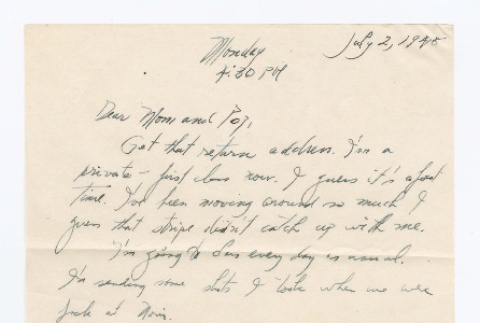 Monday July 2, 1945
4:30 PM
Dear Mom and Pop,
Get that return address. I'm a
private - first class now. I guess it's about
time. I've been moving around so much I
guess that stripe didn't catch up with me.
I'm going to every day as usual.
I'm sending some shots I took when we were
at